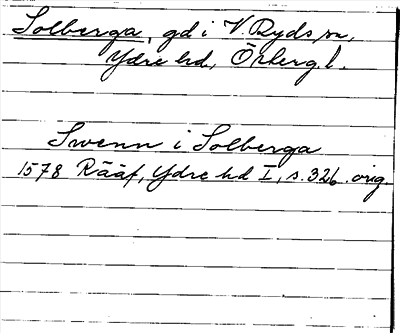 Solberga, gd i V. Ryds sn,
Ydre hd, Östergl.
Swenn i Solberga
1578 Rääf, Ydre hd I, s. 326. orig.